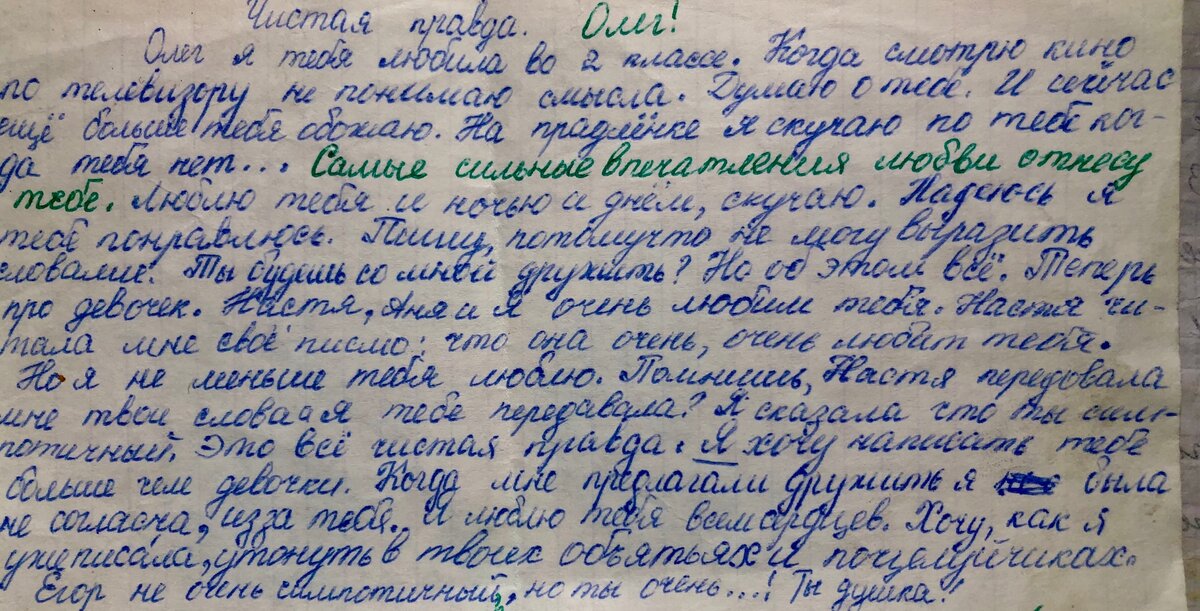 Чистая правда. Олег!
Олег я тебя любила во 2 классе. Когда смотрю кино
по телевизору не понимаю смысла. Думаю о тебе. И сейчас
ещё больше тебя обожаю. На прадлёнке я скучаю по тебе ког-
да тебя нет... Самые сильные впечатления любви отнесу
тебе. Люблю тебя и ночью и днём, скучаю. Надеюсь я
тебе понравлюсь. Пишу, потомучто не могу выразить
словами. Ты будешь со мной дружить? Но об этом всё. Теперь
про девочек. Настя, Аня и я очень любим тебя. Настя чи-
тала мне своё писмо: что она очень, очень любит тебя.
Но я не меньше тебя люблю. Помнишь, Настя передовала
мне твои слова а я тебе передавала? Я сказала что ты сим-
потичный. Это всё чистая правда. Я хочу написать тебе
больше чем девочки. Когда мне предлагали дружить я была
не согласна, изза тебя. Я люблю тебя всем сердцев. Хочу, как я
уже писала, утонуть в твоих объятьях и поцелуйчиках.
Егор не очень симпотичный, но ты очень...! Ты душка!